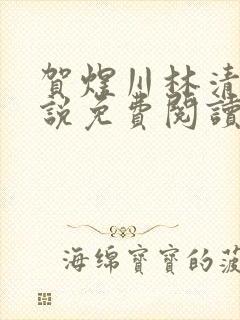 賀煜川林清
說免費閱讀
海绵寶寶的菠